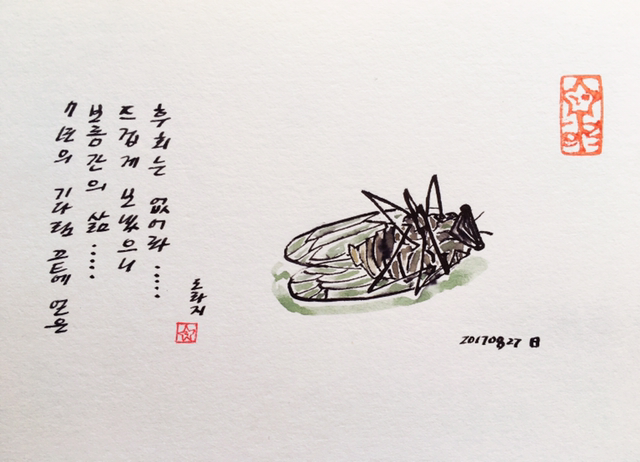 7년의 기다림 끝에 얻은
보름간의 삶......
뜨겁게 보냈으니
후회는 없어라......
도라지
20170827 日